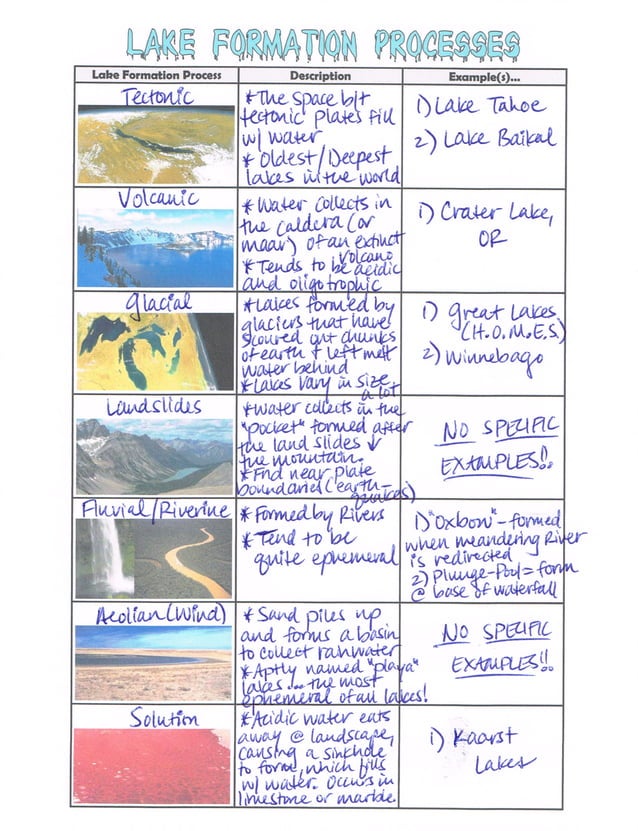 LAKE FORMATION PROCESSES
Lake Formation Process
Description
Example(s)...
Tectonic
* The space b/t
tectonic plates fill
w/ water
* Oldest/Deepest
lakes in the world
1) Lake Tahoe
2) Lake Baikal
Volcanic
* Water collects in
the caldera (or
maar) of an extinct
volcano
* Tends to be acidic
and oligotrophic
1) Crater Lake,
OR
Glacial
* Lakes formed by
glaciers that have
scoured out chunks
of earth & left melt
water behind
* Lakes vary in size
a lot
1) Great Lakes
(H.O.M.E.S.)
2) Winnebago
Landslides
* Water collects in the
"pocket" formed after
the land slides ↓
the mountain.
* Fnd near plate
boundaries (earth-
quakes)
NO SPECIFIC
EXAMPLES!!
Fluvial/Riverine
* Formed by Rivers
* Tend to be
quite ephemeral
1) "Oxbow" - formed
when meandering River
is redirected
2) Plunge-Pool = form
@ base of waterfall
Aeolian (Wind)
* Sand piles up
and forms a basin
to collect rainwater
* Aptly named "playa"
lakes... the most
ephemeral of all lakes!
NO SPECIFIC
EXAMPLES!!
Solution
* Acidic water eats
away @ landscape,
causing a sinkhole
to form, which fills
w/ water. Occurs in
limestone or marble.
1) Kaarst
Lakes